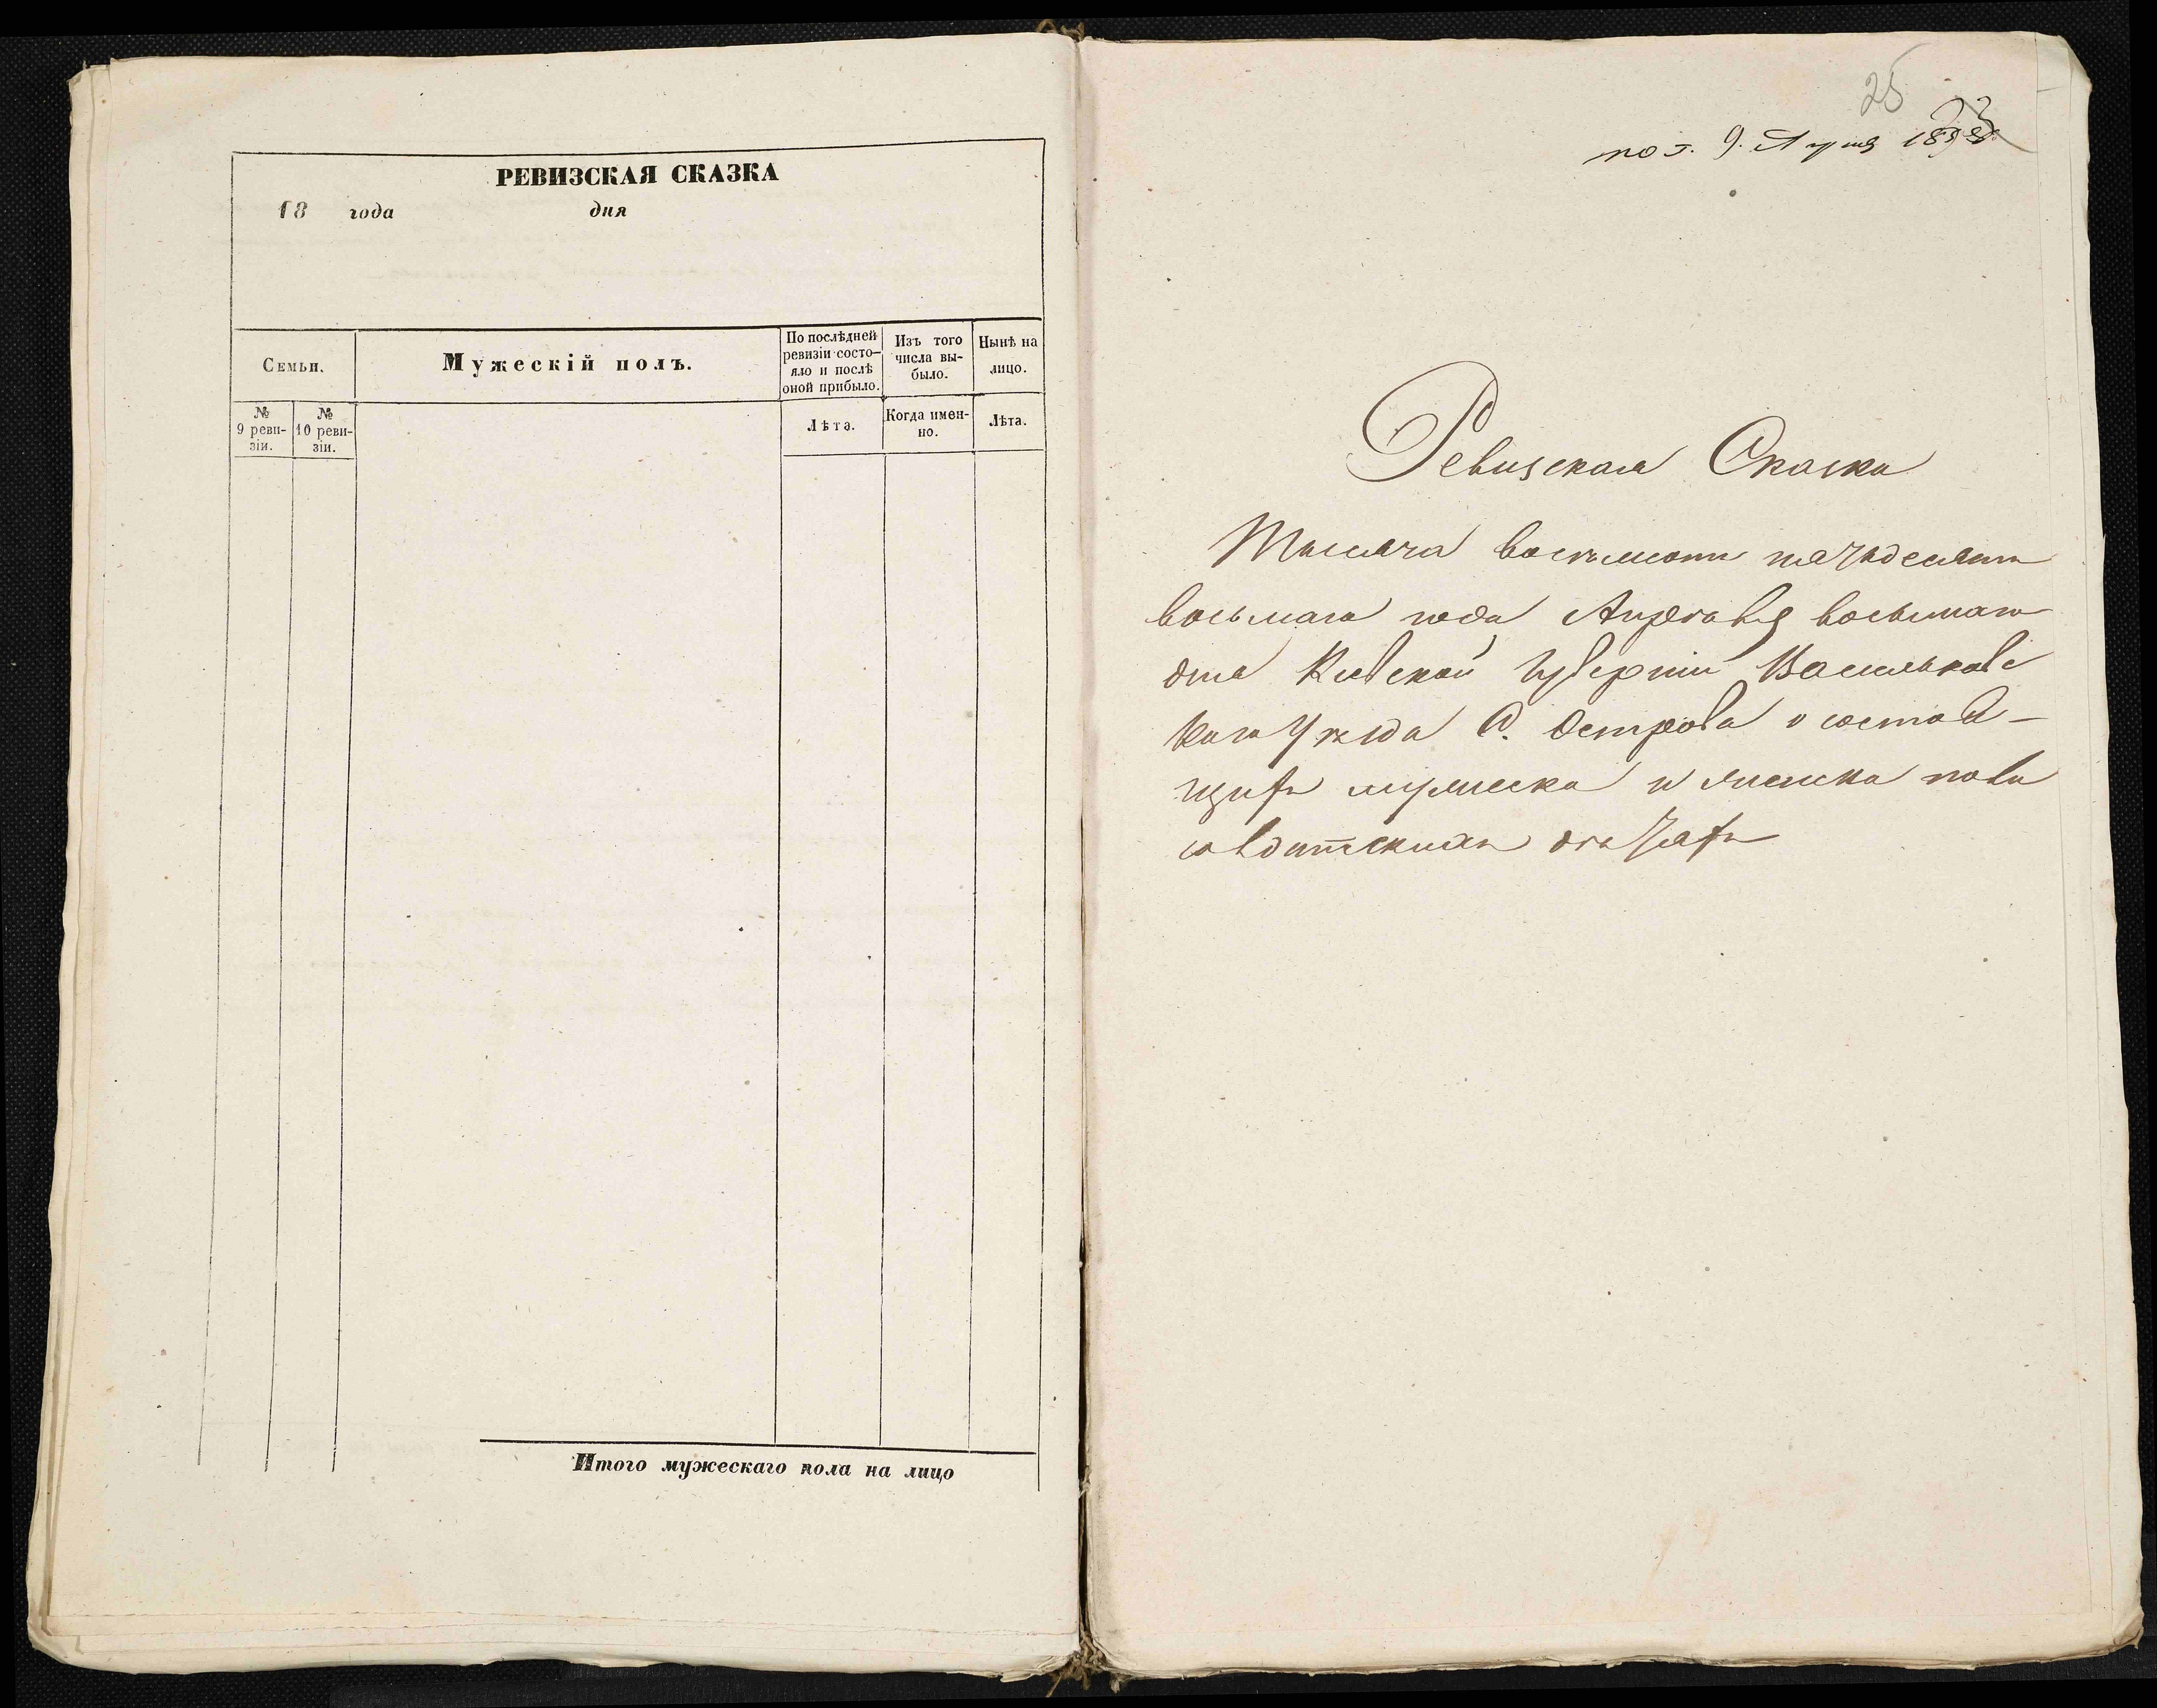 РЕВИЗСКАЯ СКАЗКА
18 года дня
Семьи.
Мужескій полъ.
По послѣдней
ревизіи состо-
яло и послѣ
оной прибыло.
Изъ того
числа вы-
было.
Нынѣ на
лицо.
№
9 реви-
зіи.
№
10 реви-
зіи.
Лѣта.
Когда имен-
но.
Лѣта.
Итого мужескаго пола на лицо
25
9. Апреля
Ревизская Сказка
Тысяча восемьсотъ пятьдесятъ
восьмаго года Апреля восьмаго
дня Киевской Губерніи Васильковс
каго Уезда С. Острова о состоя-
щихъ мужеска и женска пола